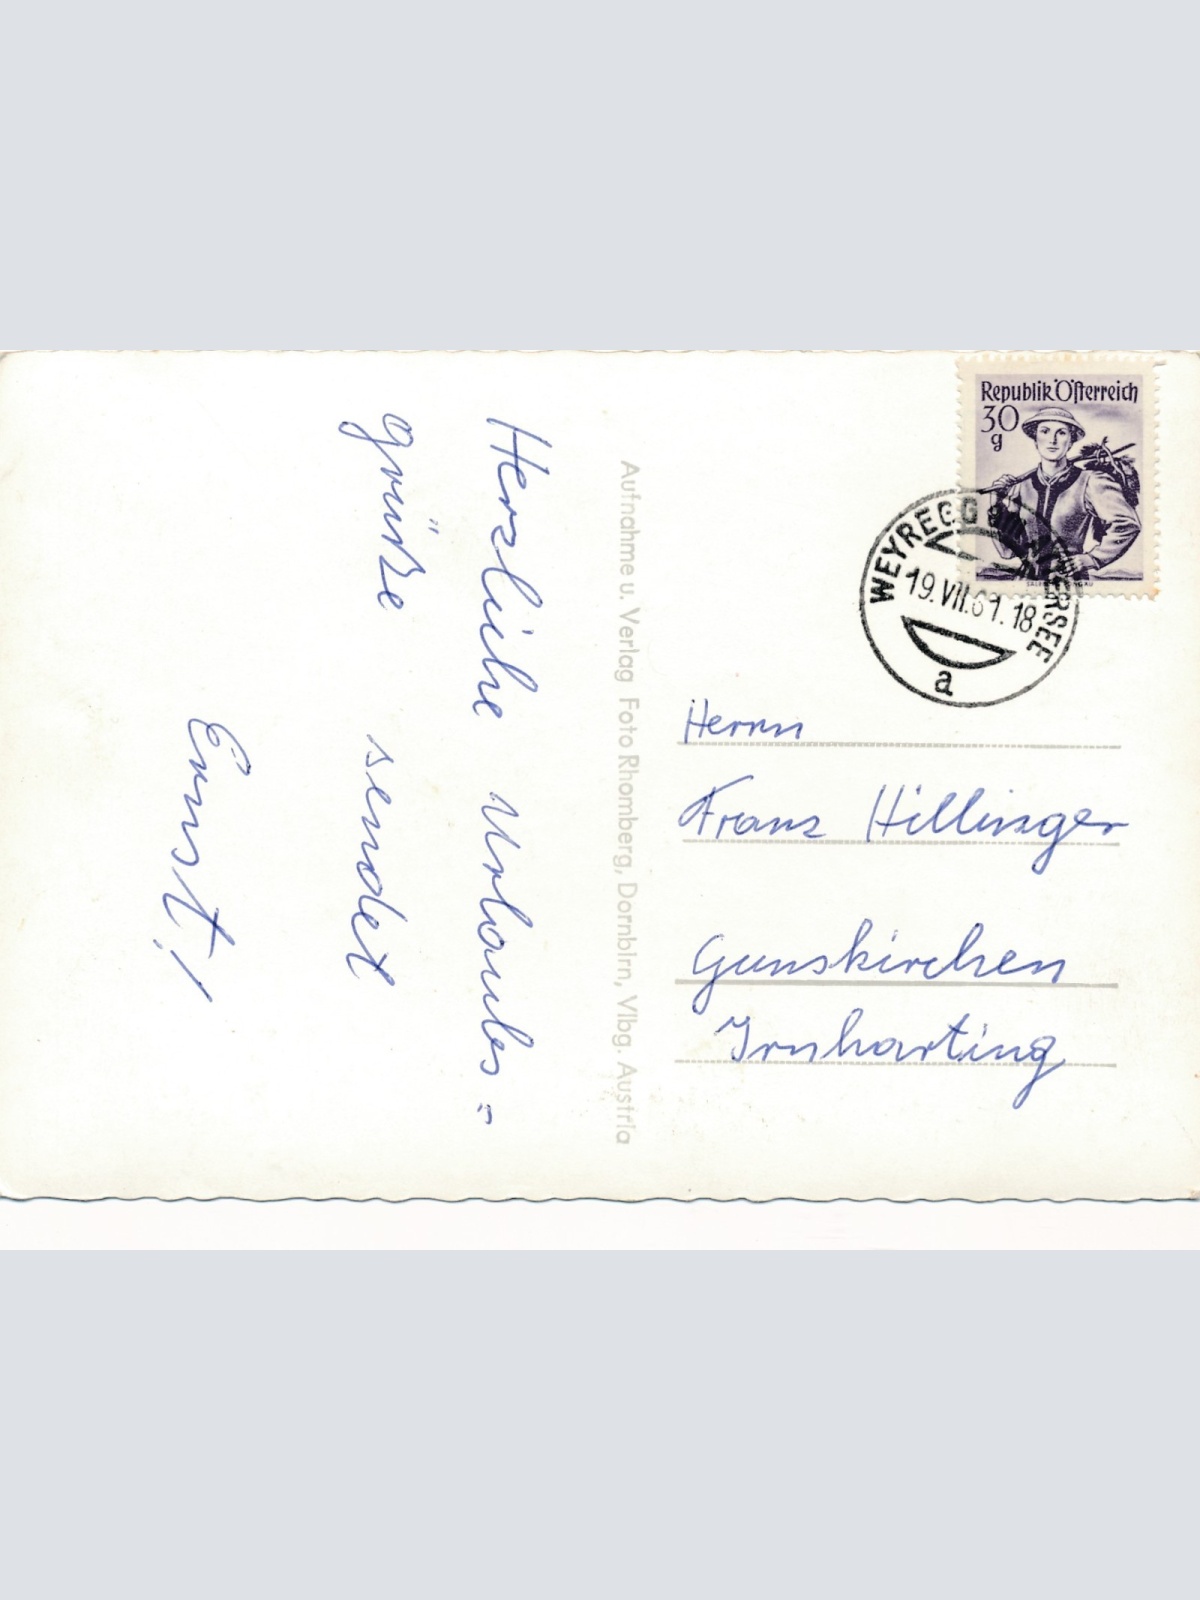 Herzliche Urlaubs=
grüße sendet
Ernst!
Aufnahme u. Verlag Foto Rhomberg, Dornbirn, Vlbg. Austria
Republik Österreich
30
g
WEYREGG
19.VII.61.18
a
Herrn
Franz Hillinger
Gunskirchen
Irnharting